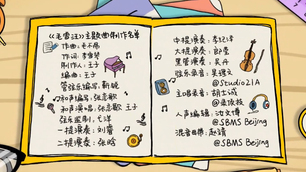 《毛雪汪》主题曲制作名单
作曲：毛不易
作词：李雪琴
制作人：王子
编曲：王子
管弦乐编写：靳晓
和声编写：张恋歌
和声演唱：张恋歌 王子
弦乐监制：
一提演奏：刘睿
二提演奏：张晗
中提演奏：
大提演奏：郎莹
黑管演奏：吴丹
弦乐录音：吴鸿文
@Studio21A
主唱录音：胡士诚
人声编辑：汝文博
@SBMS Beijing
混音母带：赵靖
@SBMS Beijing